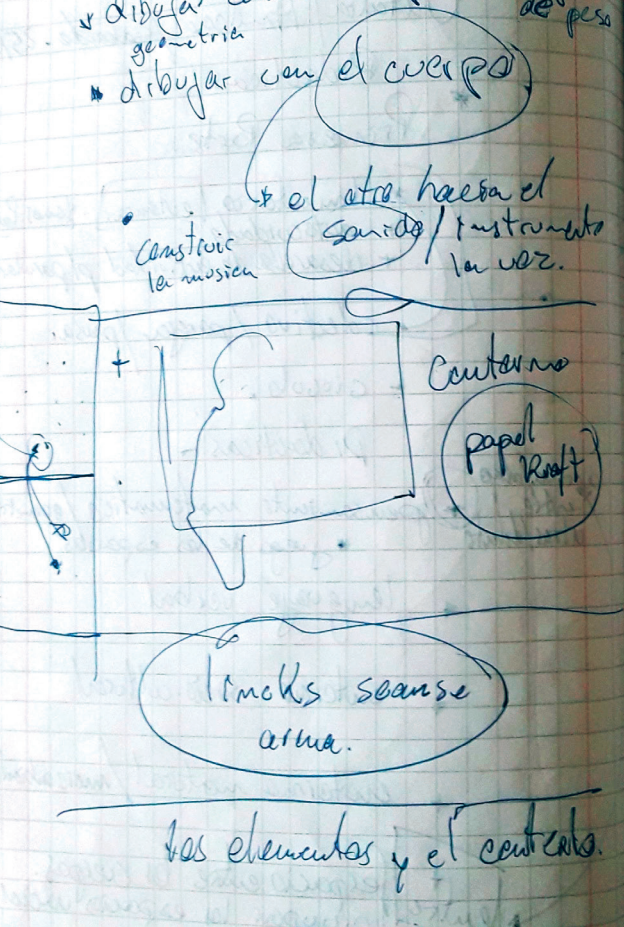 dibujar
geometria
de peso
dibujar con el cuerpo
el otro hacia el
sonido / instrumento
la voz.
construir
la musica
+
Contorno
papel
Kraft
arma.
los elementos y el contexto.